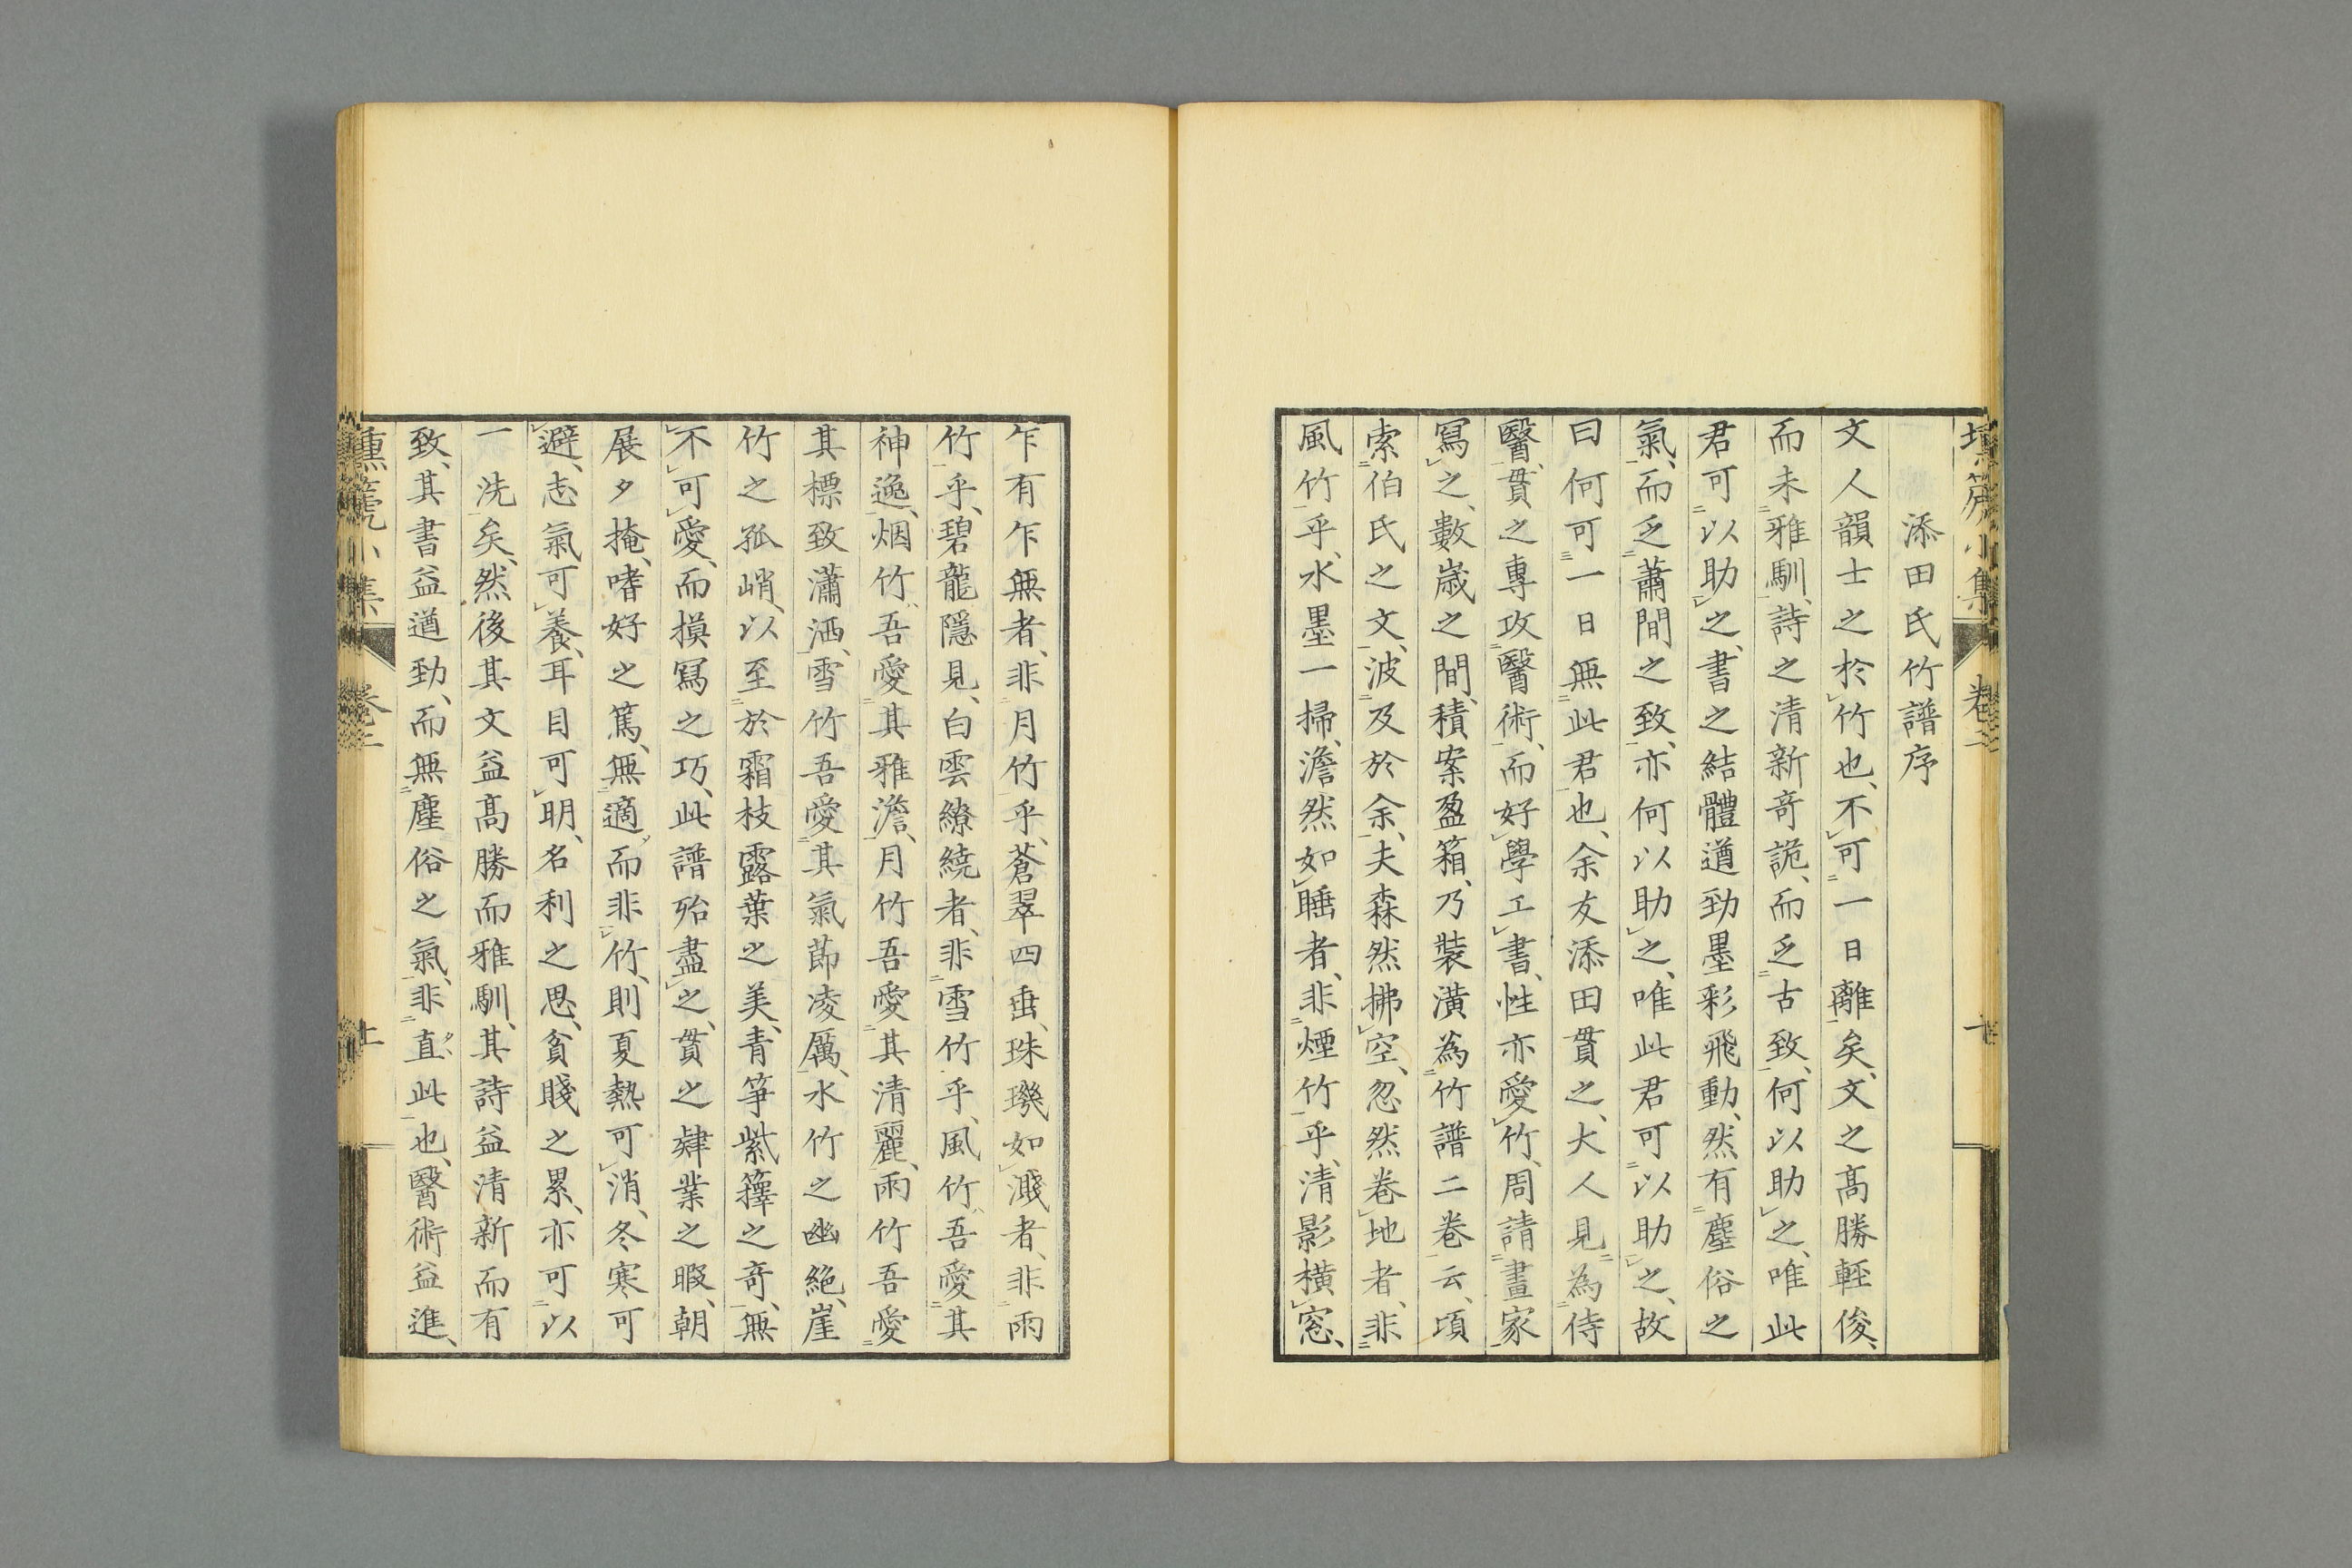 添田氏竹譜序
文人韻士之於竹也、不可一日離矣、文之高勝輕俊、
而未雅馴、詩之清新奇詭、而乏古致、何以助之、唯此
君可以助之、書之結體遒勁墨彩飛動、然有塵俗之
氣、而乏蕭閒之致、亦何以助之、唯此君可以助之、故
曰何可一日無此君也、余友添田貫之、大人見為侍
醫、貫之專攻醫術、而好學工書、性亦愛竹、周請畫家
寫之、數歲之間、積案盈箱、乃裝潢為竹譜二卷云、頃
索伯氏之文、波及於余、夫森然拂空、忽然卷地者、非
風竹乎、水墨一掃、澹然如睡者、非煙竹乎、清影橫窓、
乍有乍無者、非月竹乎、蒼翠四垂、珠璣如濺者、非雨
竹乎、碧龍隱見、白雲繚繞者、非雪竹乎、風竹吾愛其
神逸、烟竹吾愛其雅澹、月竹吾愛其清麗、雨竹吾愛
其標致瀟洒、雪竹吾愛其氣節凌厲、水竹之幽絕、崖
竹之孤峭、以至於霜枝露葉之美、青箏紫籜之奇、無
不可愛、而摸寫之巧、此譜殆盡之、貫之肄業之暇、朝
展夕掩、嗜好之篤、無適而非竹、則夏熱可消、冬寒可
避、志氣可養、耳目可明、名利之思、貧賤之累、亦可以
一洗矣、然後其文益高勝而雅馴、其詩益清新而有
致、其書益遒勁、而無塵俗之氣、非直此也、醫術益進、